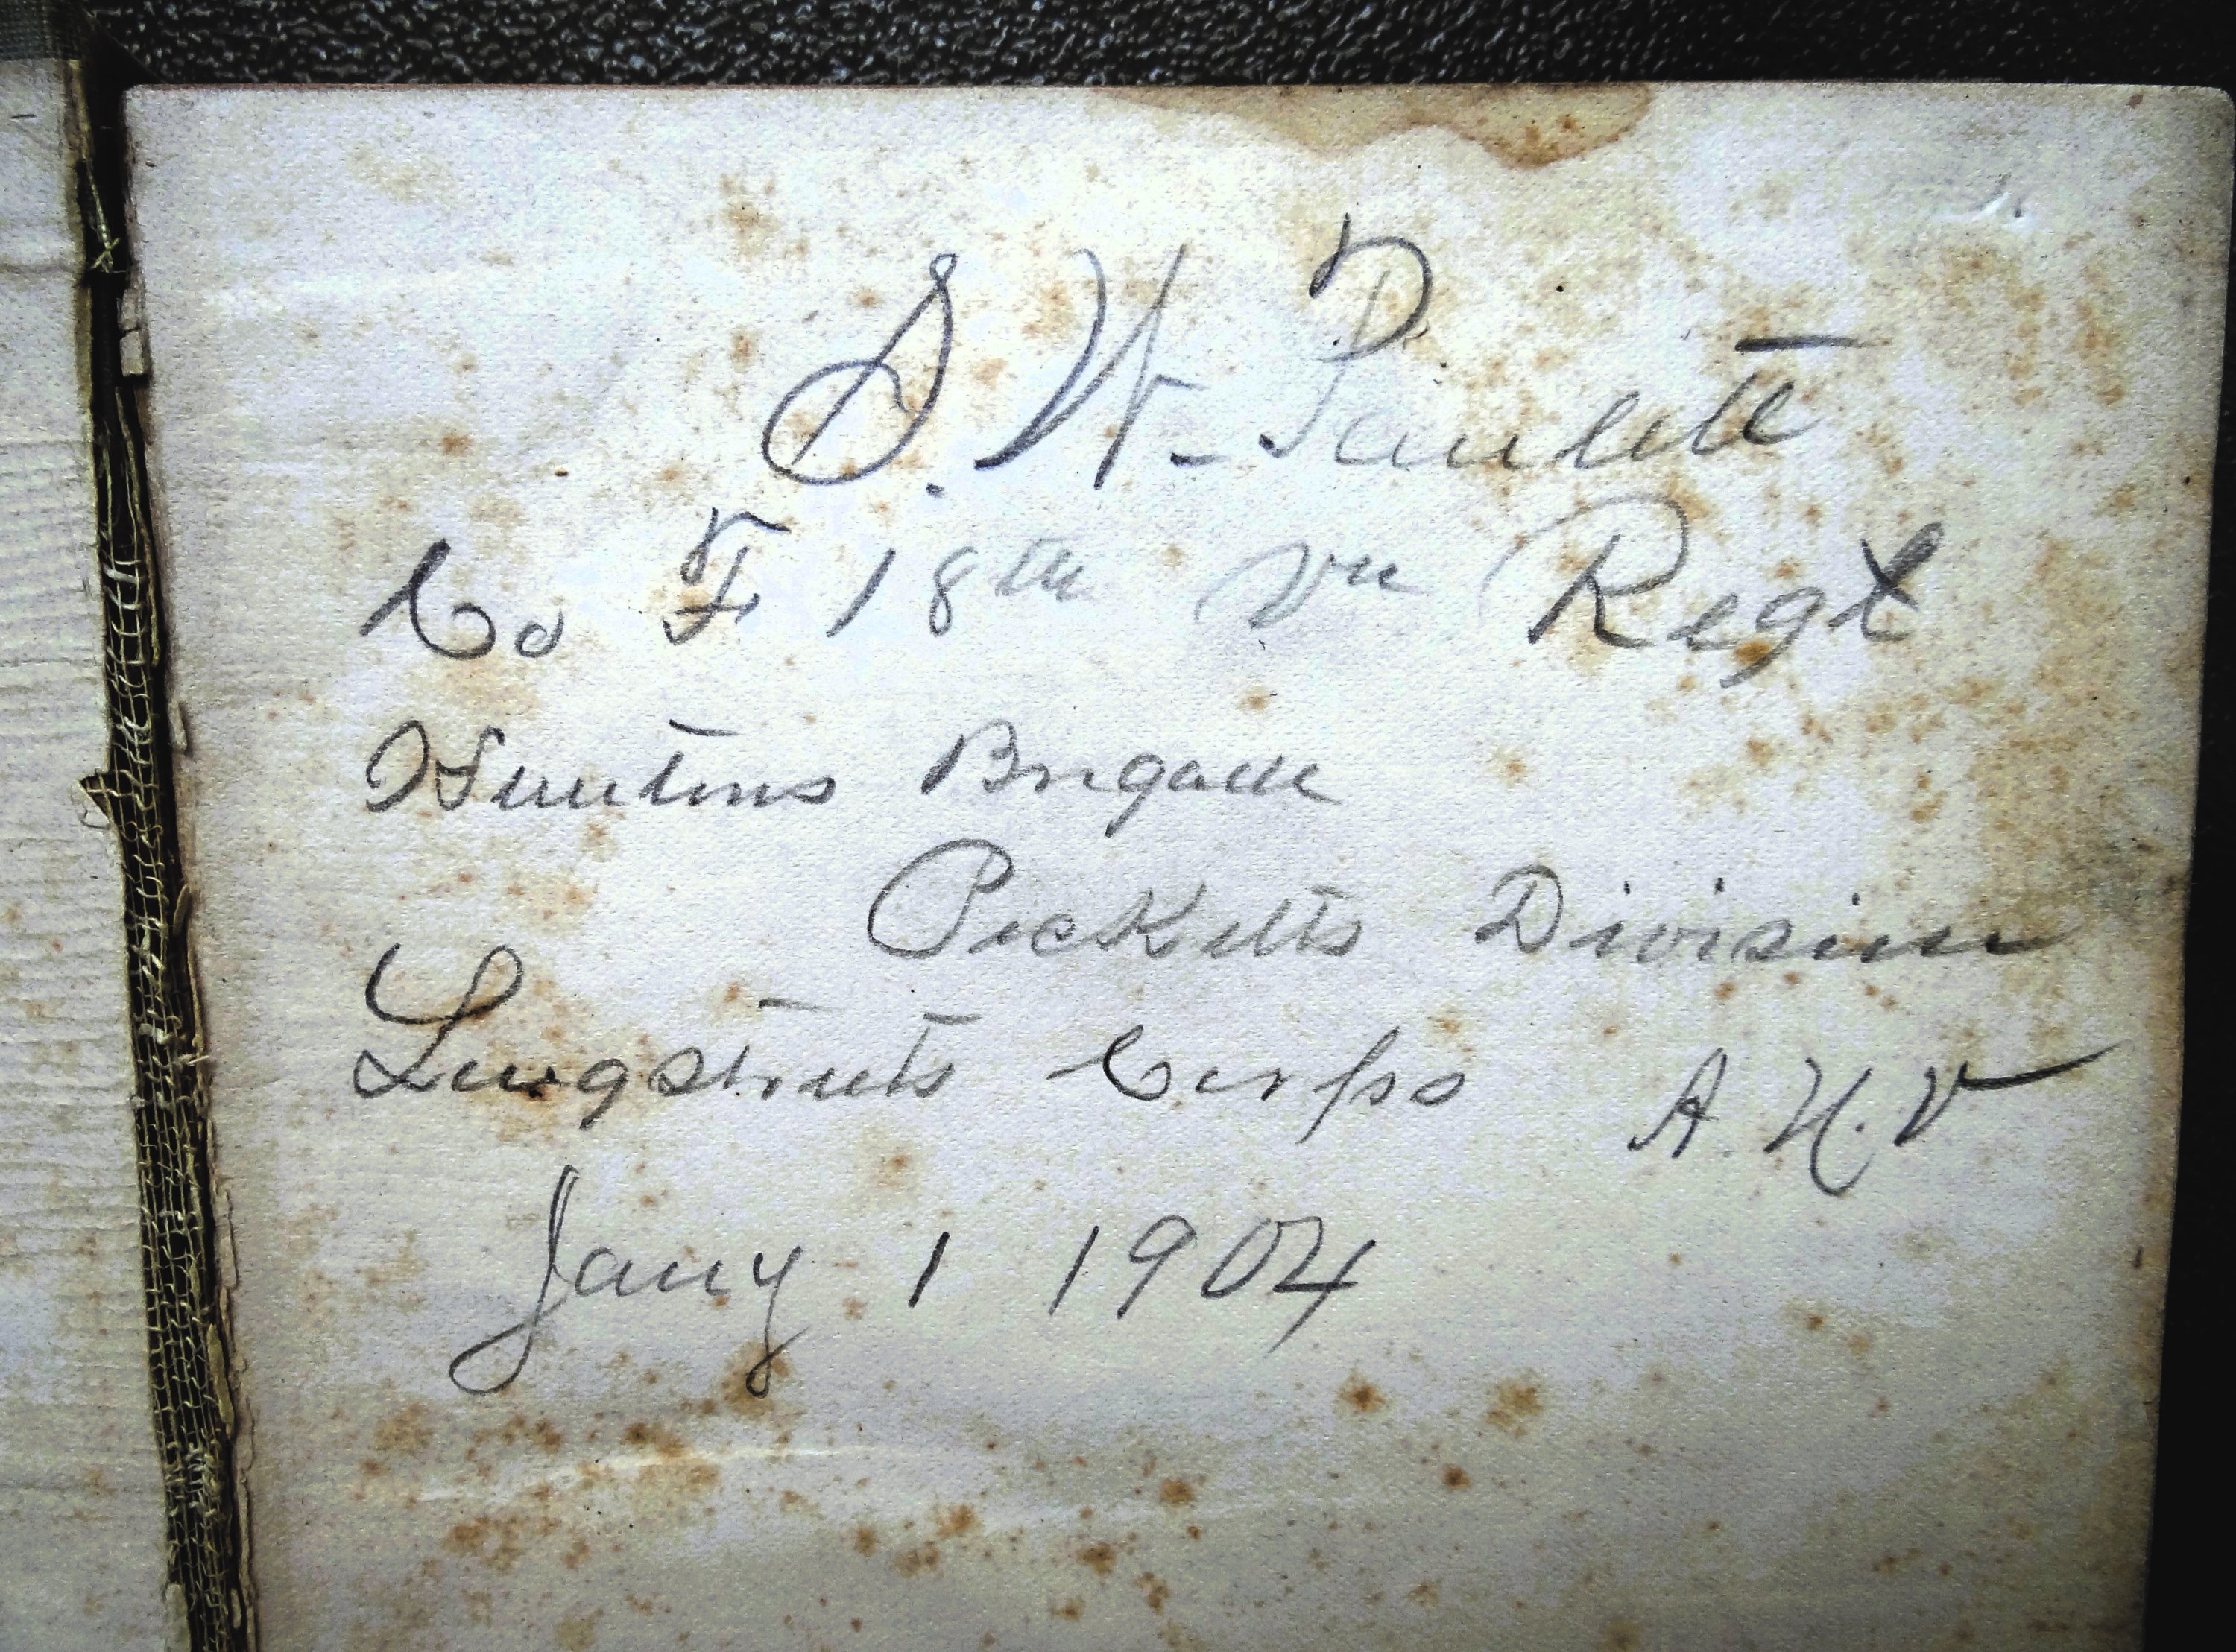 S. W. Paulett
Co F 18th Va Regt
Huntons Brigade
Picketts Division
Longstreets Corps A. N. V
Jany 1 1904